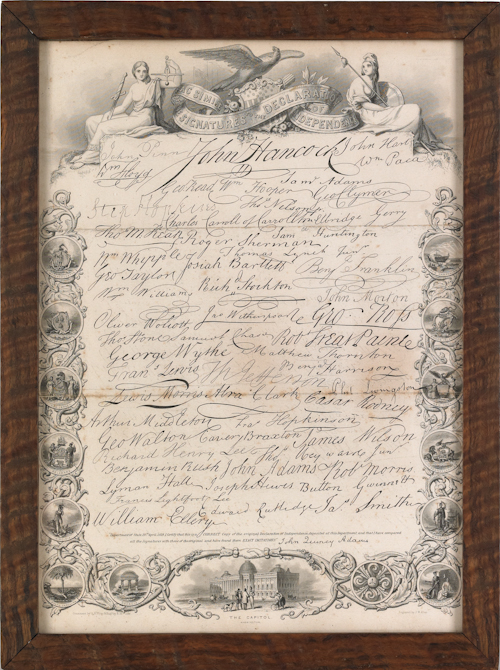 FAC SIMILE OF THE
SIGNATURES TO THE DECLARATION OF INDEPENDENCE
John Penn John Hancock John Hart
Wm Floyd Wm Paca
Geo Read Wm Hooper Saml Adams Geo Clymer
Step Hopkins Thos Nelson jr
Charles Carroll of Carrollton Elbridge Gerry
Tho M Kean Roger Sherman Sam Huntington
Wm Whipple Thomas Lynch Junr
Geo Taylor Josiah Bartlett Benj Franklin
Wm Williams Richd Stockton John Morton
Oliver Wolcott Jno Witherspoon Geo Ross
Thos Stone Samuel Chase Robt Treat Paine
George Wythe Matthew Thornton
Frans Lewis Th Jefferson Benj Harrison
Lewis Morris Abra Clark Phil Livingston
Cæsar Rodney
Arthur Middleton Fras Hopkinson
Geo Walton Carter Braxton James Wilson
Richard Henry Lee Thos Heyward Junr
Benjamin Rush John Adams Robt Morris
Lyman Hall Joseph Hewes Button Gwinnett
Francis Lightfoot Lee
William Ellery Edward Rutledge Jas Smith
John Quincy Adams
THE CAPITOL